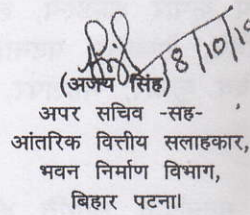 18/10/19
(अजय सिंह)
अपर सचिव -सह-
आंतरिक वित्तीय सलाहकार,
भवन निर्माण विभाग,
बिहार पटना।